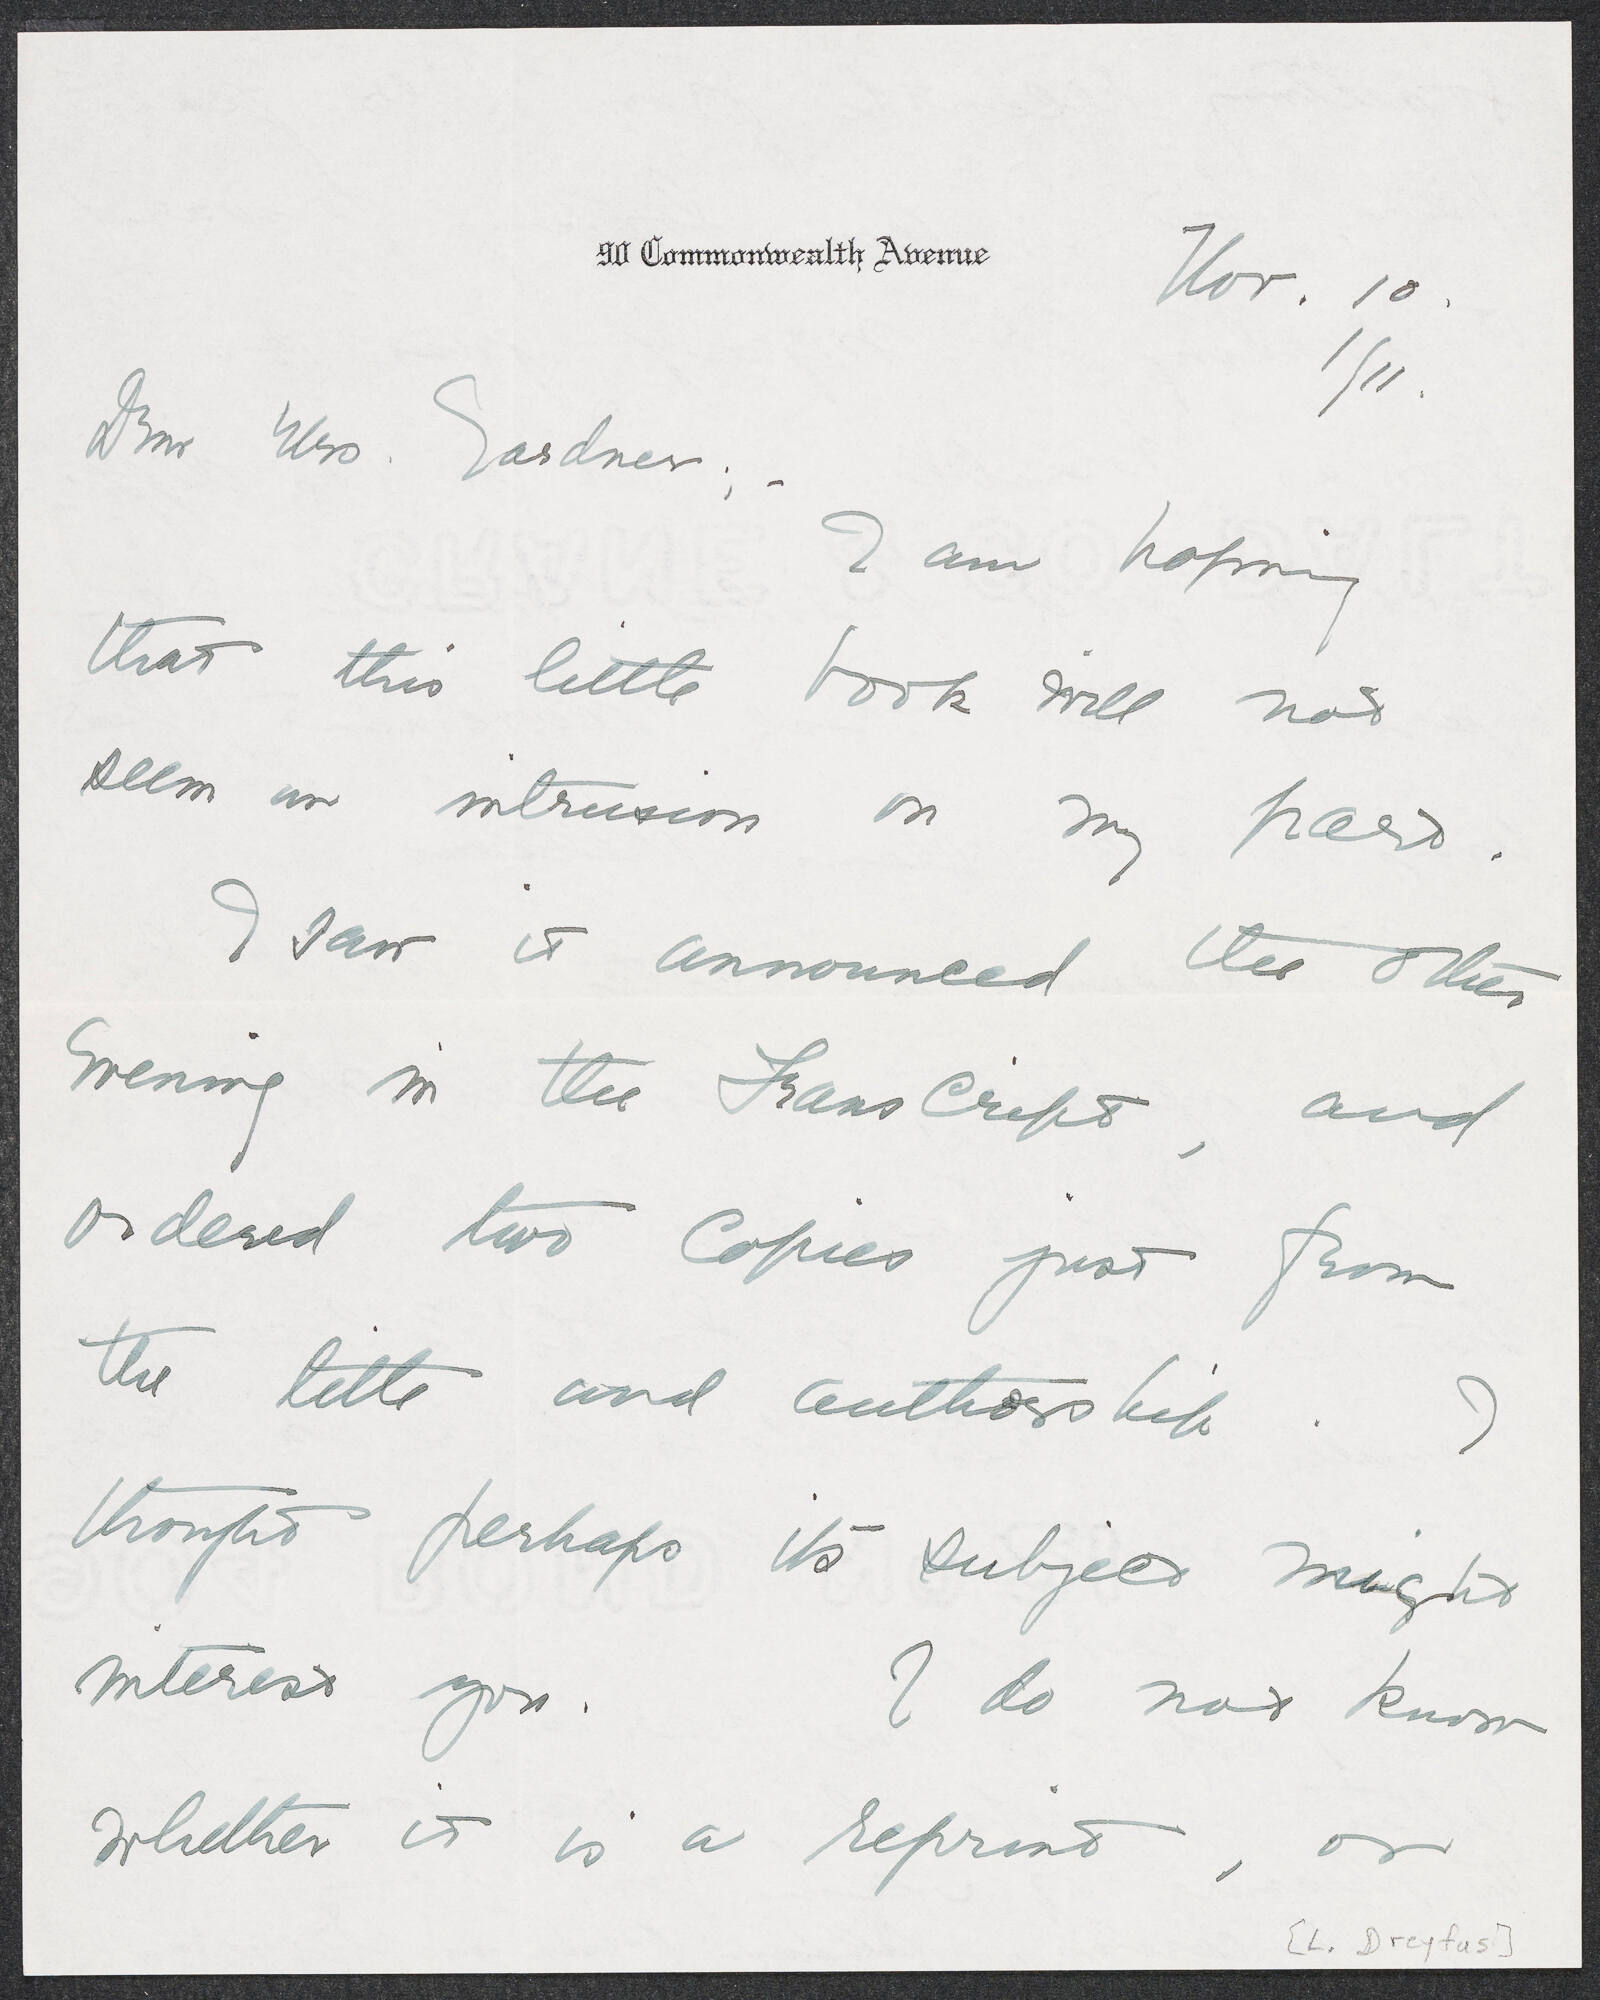 90 Commonwealth Avenue
Nov. 10.
1/11.
Dear Mrs. Gardner;-
I am hoping
that this little book will not
seem an intrusion on my part.
I saw it announced the other
Evening in the Transcript, and
ordered two Copies just from
the title and authorship. I
thought perhaps its subject might
interest you. I do not know
whether it is a reprint, or
[L. Dreyfus]